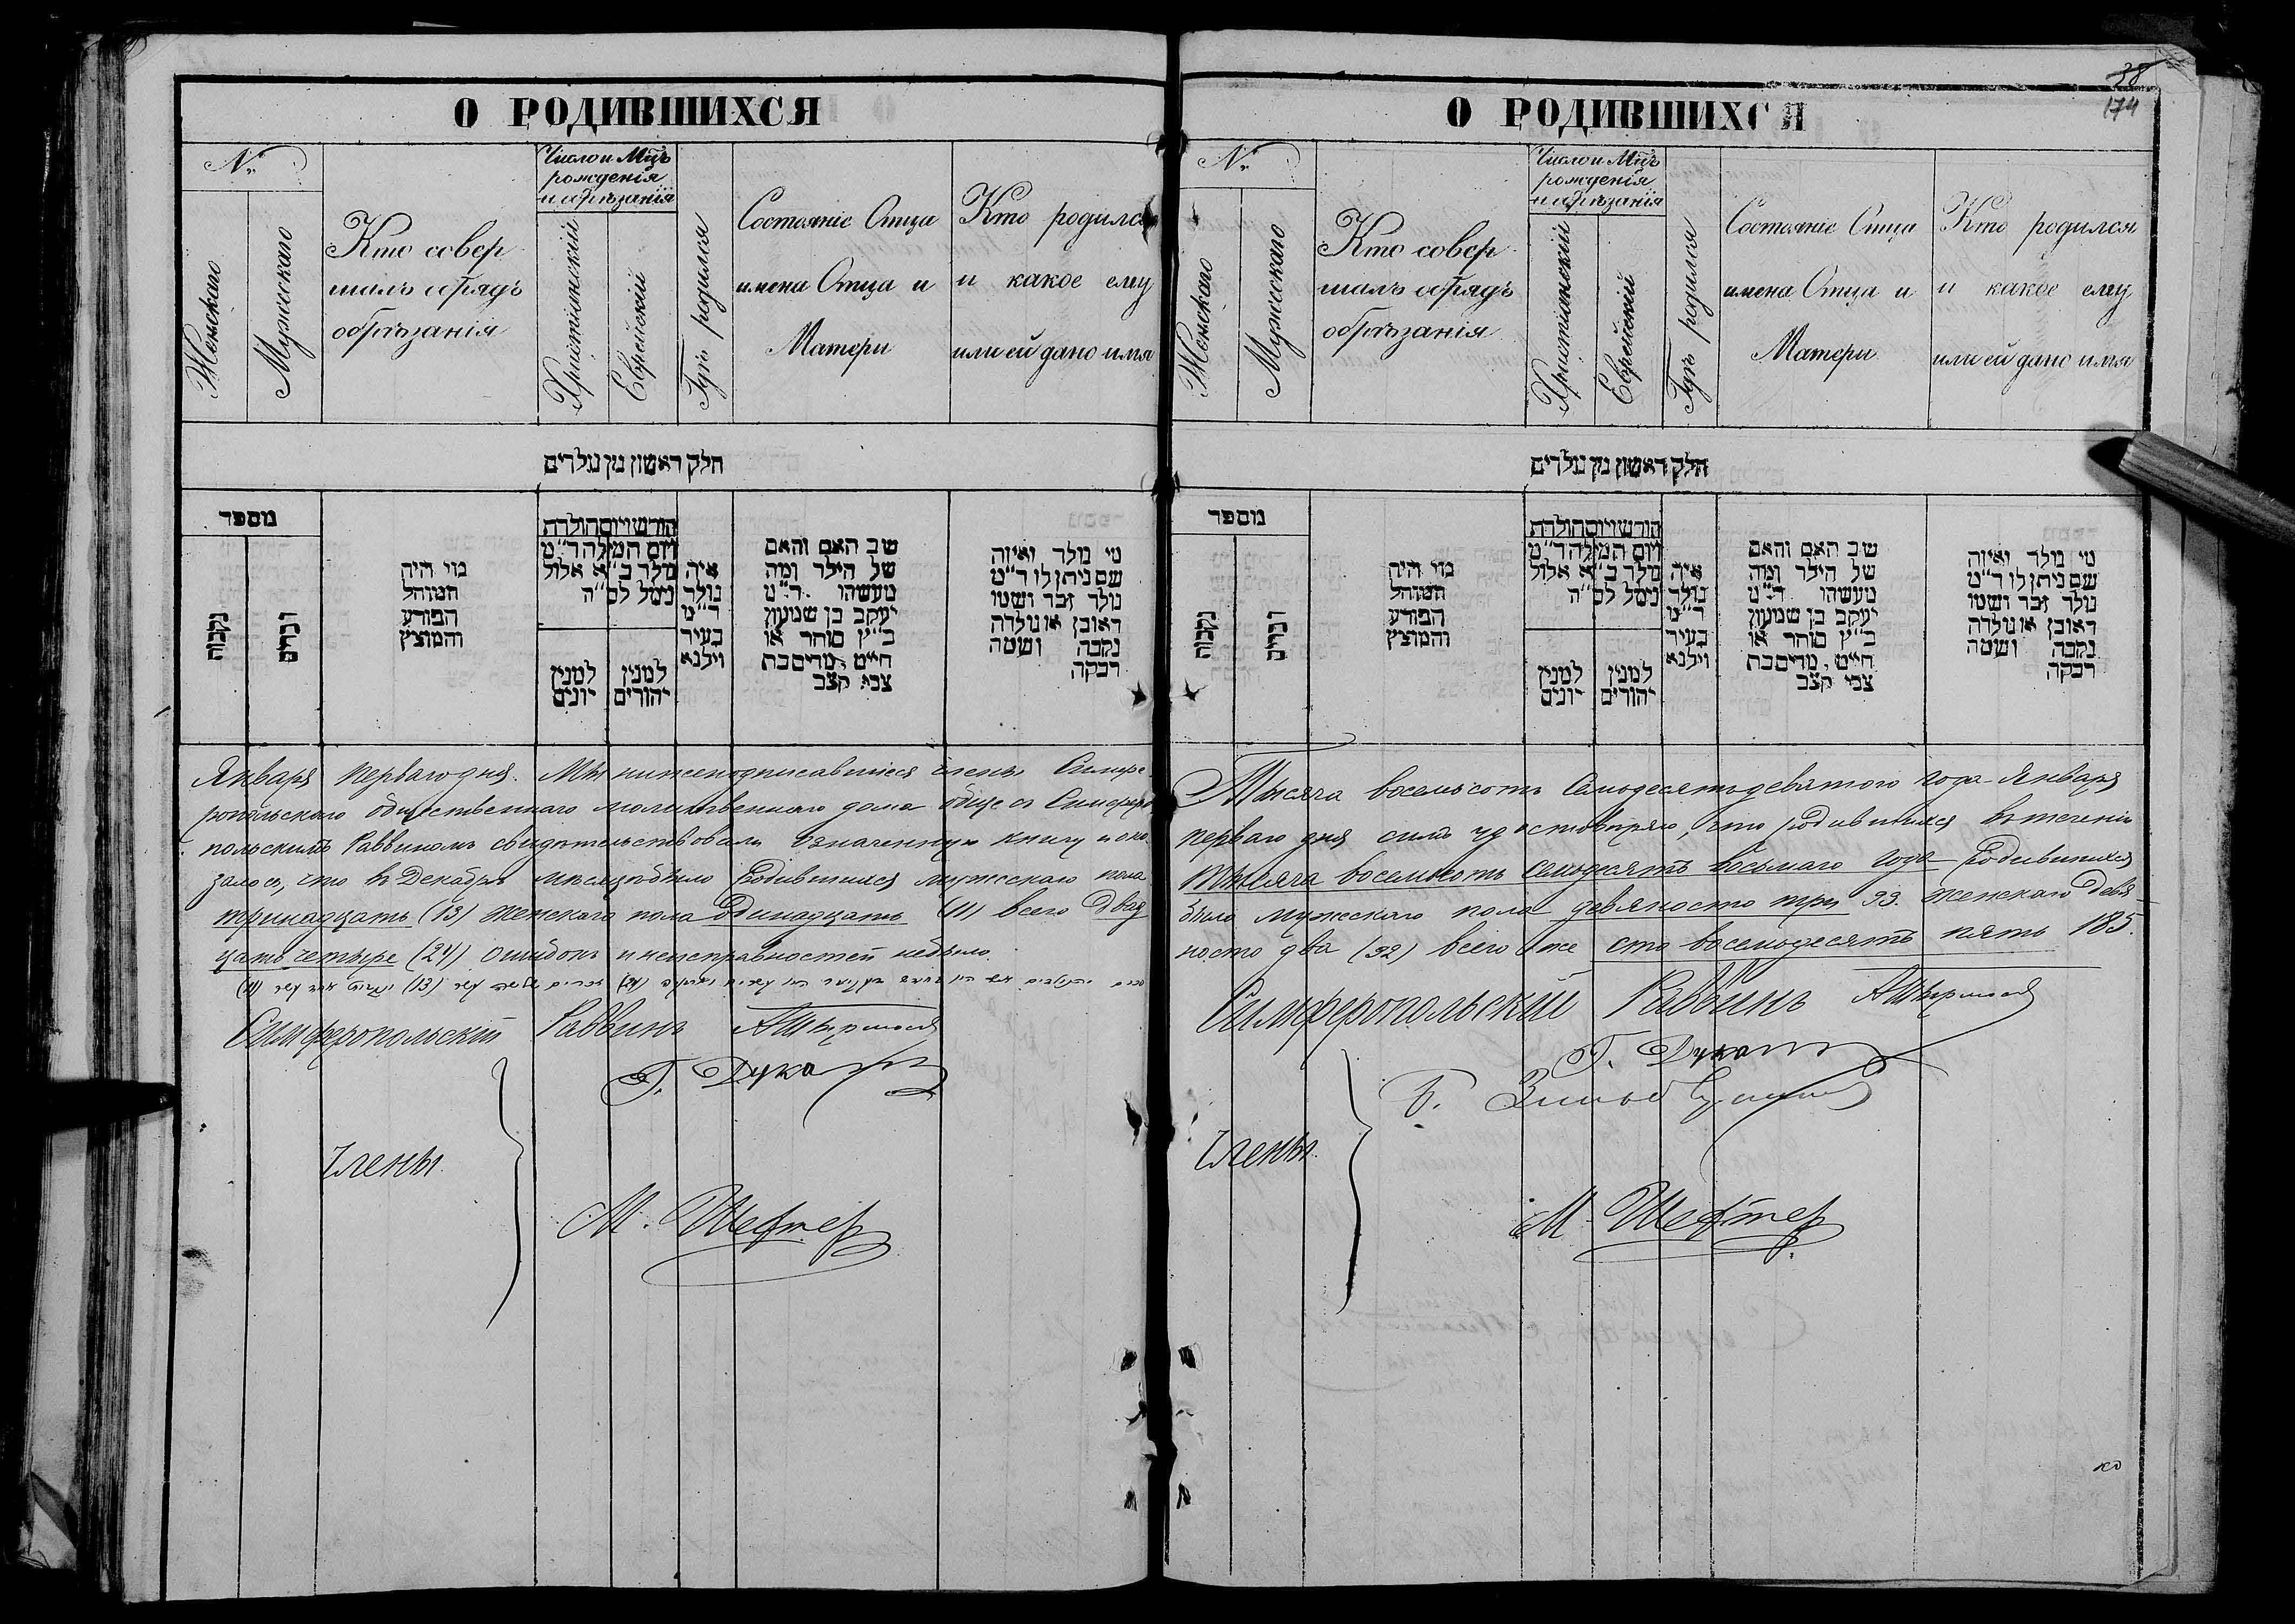 О РОДИВШИХСЯ
№
Женскаго
Мужескаго
Кто совер
шалъ обрядъ
обрѣзанія
Число и Мцъ
рожденія
и обрѣзанія
Христіянскій
Еврейскій
Гдѣ родился
Состояніе Отца
имена Отца и
Матери
Кто родился
и какое ему
или ей дано имя
חלק ראשון מן נולדים
מספר
נקבות
זכרים
מי היה
המוהל
הפורע
והמוצץ
חודש ויום הולדת
ויום המילה ד״מ
נולד ב״א אלול
נימל לס״ה
למנין
יונים
למנין
יהודים
איה
נולד
ד״מ
בעיר
וילנא
שב האם והאם
של הילד ומה
מעשהו ד״מ
יעקב בן שמעון
כ״ץ סוחר או
חייט מרים בת
צבי קצב
מי נולד ואיזה
שם ניתן לו ד״מ
נולד זכר ושמו
ראובן או נולדה
נקבה ושמה
רבקה
Января перваго дня. Мы нижеподписавшіеся члены Симфе
ропольскаго общественнаго молитвеннаго дома обще съ Симферо
польскимъ Раввиномъ свидѣтельствовали означенную книгу и ока
залось, что въ Декабрѣ мѣсяцѣ было родившихся мужескаго пола
тринадцать (13) женскаго пола одинадцать (11) всего двад
цать четыре (24) ошибокъ и неисправностей небыло.
(24) (13) (11)
Симферопольскій Раввинъ
Г. Дукар
Члены
М. Шефтер
О РОДИВШИХСЯ
38
174
№
Женскаго
Мужескаго
Кто совер
шалъ обрядъ
обрѣзанія
Число и Мцъ
рожденія
и обрѣзанія
Христіянскій
Еврейскій
Гдѣ родился
Состояніе Отца
имена Отца и
Матери
Кто родился
и какое ему
или ей дано имя
חלק ראשון מן נולדים
מספר
נקבות
זכרים
מי היה
המוהל
הפורע
והמוצץ
חודש ויום הולדת
ויום המילה ד״מ
נולד ב״א אלול
נימל לס״ה
למנין
יונים
למנין
יהודים
איה
נולד
ד״מ
בעיר
וילנא
שב האם והאם
של הילד ומה
מעשהו ד״מ
יעקב בן שמעון
כ״ץ סוחר או
חייט מרים בת
צבי קצב
מי נולד ואיזה
שם ניתן לו ד״מ
נולד זכר ושמו
ראובן או נולדה
נקבה ושמה
רבקה
Тысяча восемьсотъ семьдесятъ девятого года Января
перваго дня симъ удостовѣряю, что родившихся втеченіи
тысяча восемьсотъ семьдесятъ восьмаго года родившихся
было мужескаго пола девяносто три 93. женскаго девя
носто два (92) всего же сто восемьдесятъ пять 185.
Симферопольскій Раввинъ
Г. Дукар
Члены
М. Шефтер